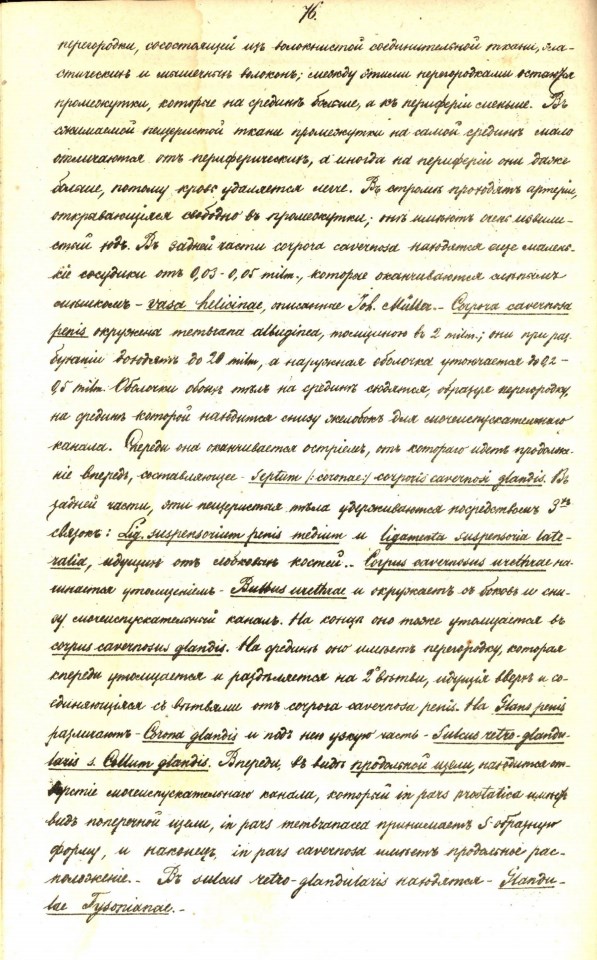 76.
перегородки, сосостоящей изъ волокнистой соединительной ткани, эла-
стическихъ и мышечныхъ волоконъ; между этими перегородками остаются
промежутки, которые на срединѣ больше, а къ периферіи меньше. Въ
сжимаемой пещеристой ткани промежутки на самой срединѣ мало
отличаются отъ периферическихъ, а иногда на периферіи они даже
больше, потому кровь удаляется легче. Въ стромѣ проходятъ артеріи,
открывающіяся свободно въ промежутки; онѣ имѣютъ очень извили-
стый ходъ. Въ задней части corpora cavernosa находятся еще малень-
кіе сосудики отъ 0,03-0,05 milm., которые оканчиваются слѣпымъ
мѣшкомъ - vasa helicinae, описанные Joh. Müller. - Corpora cavernosa
penis окружена membrana albuginea, толщиною въ 2 milm.; они при раз-
буханіи доходятъ до 20 milm, а наружная оболочка утончается до 0,2-
0,5 milm. Оболочки обоихъ тѣлъ на срединѣ сходятся, образуя перегородку,
на срединѣ которой находится снизу желобокъ для мочеиспускательнаго
канала. Спереди она оканчивается остріемъ, отъ котораго идетъ продолже-
ніе впередъ, составляющее - Septum /: coronae :/ corporis cavernosi glandis. Въ
задней части, эти пещеристыя тѣла удерживаются посредствомъ 3хъ
связокъ: Lig. suspensorium penis medium и ligamenta suspensoria late-
ralia, идущихъ отъ лобковыхъ костей. - Corpus cavernosus urethrae на-
чинается утолщеніемъ - Bulbus urethrae и окружаетъ съ боковъ и сни-
зу мочеиспускательный каналъ. На концѣ оно тоже утолщается въ
corpus cavernosus glandis. На срединѣ оно имѣетъ перегородку, которая
кпереди утолщается и раздѣляется на 2 вѣтви, идущія вверхъ и со-
единяющіяся съ вѣтвями отъ corpora cavernosa penis. На Glans penis
различаютъ - Corona glandis и подъ нею узкую часть - Sulcus retro-glandu-
laris s. Collum glandis. Впереди, въ видѣ продольной щели, находится от-
верстіе мочеиспускательнаго канала, который in pars prostatica имѣетъ
видъ поперечной щели, in pars membranacea принимаетъ S-образную
форму, и наконецъ, in pars cavernosa имѣетъ продольное рас-
положеніе. - Въ sulcus retro-glandularis находятся - Glandu-
lae Tysonianae. -